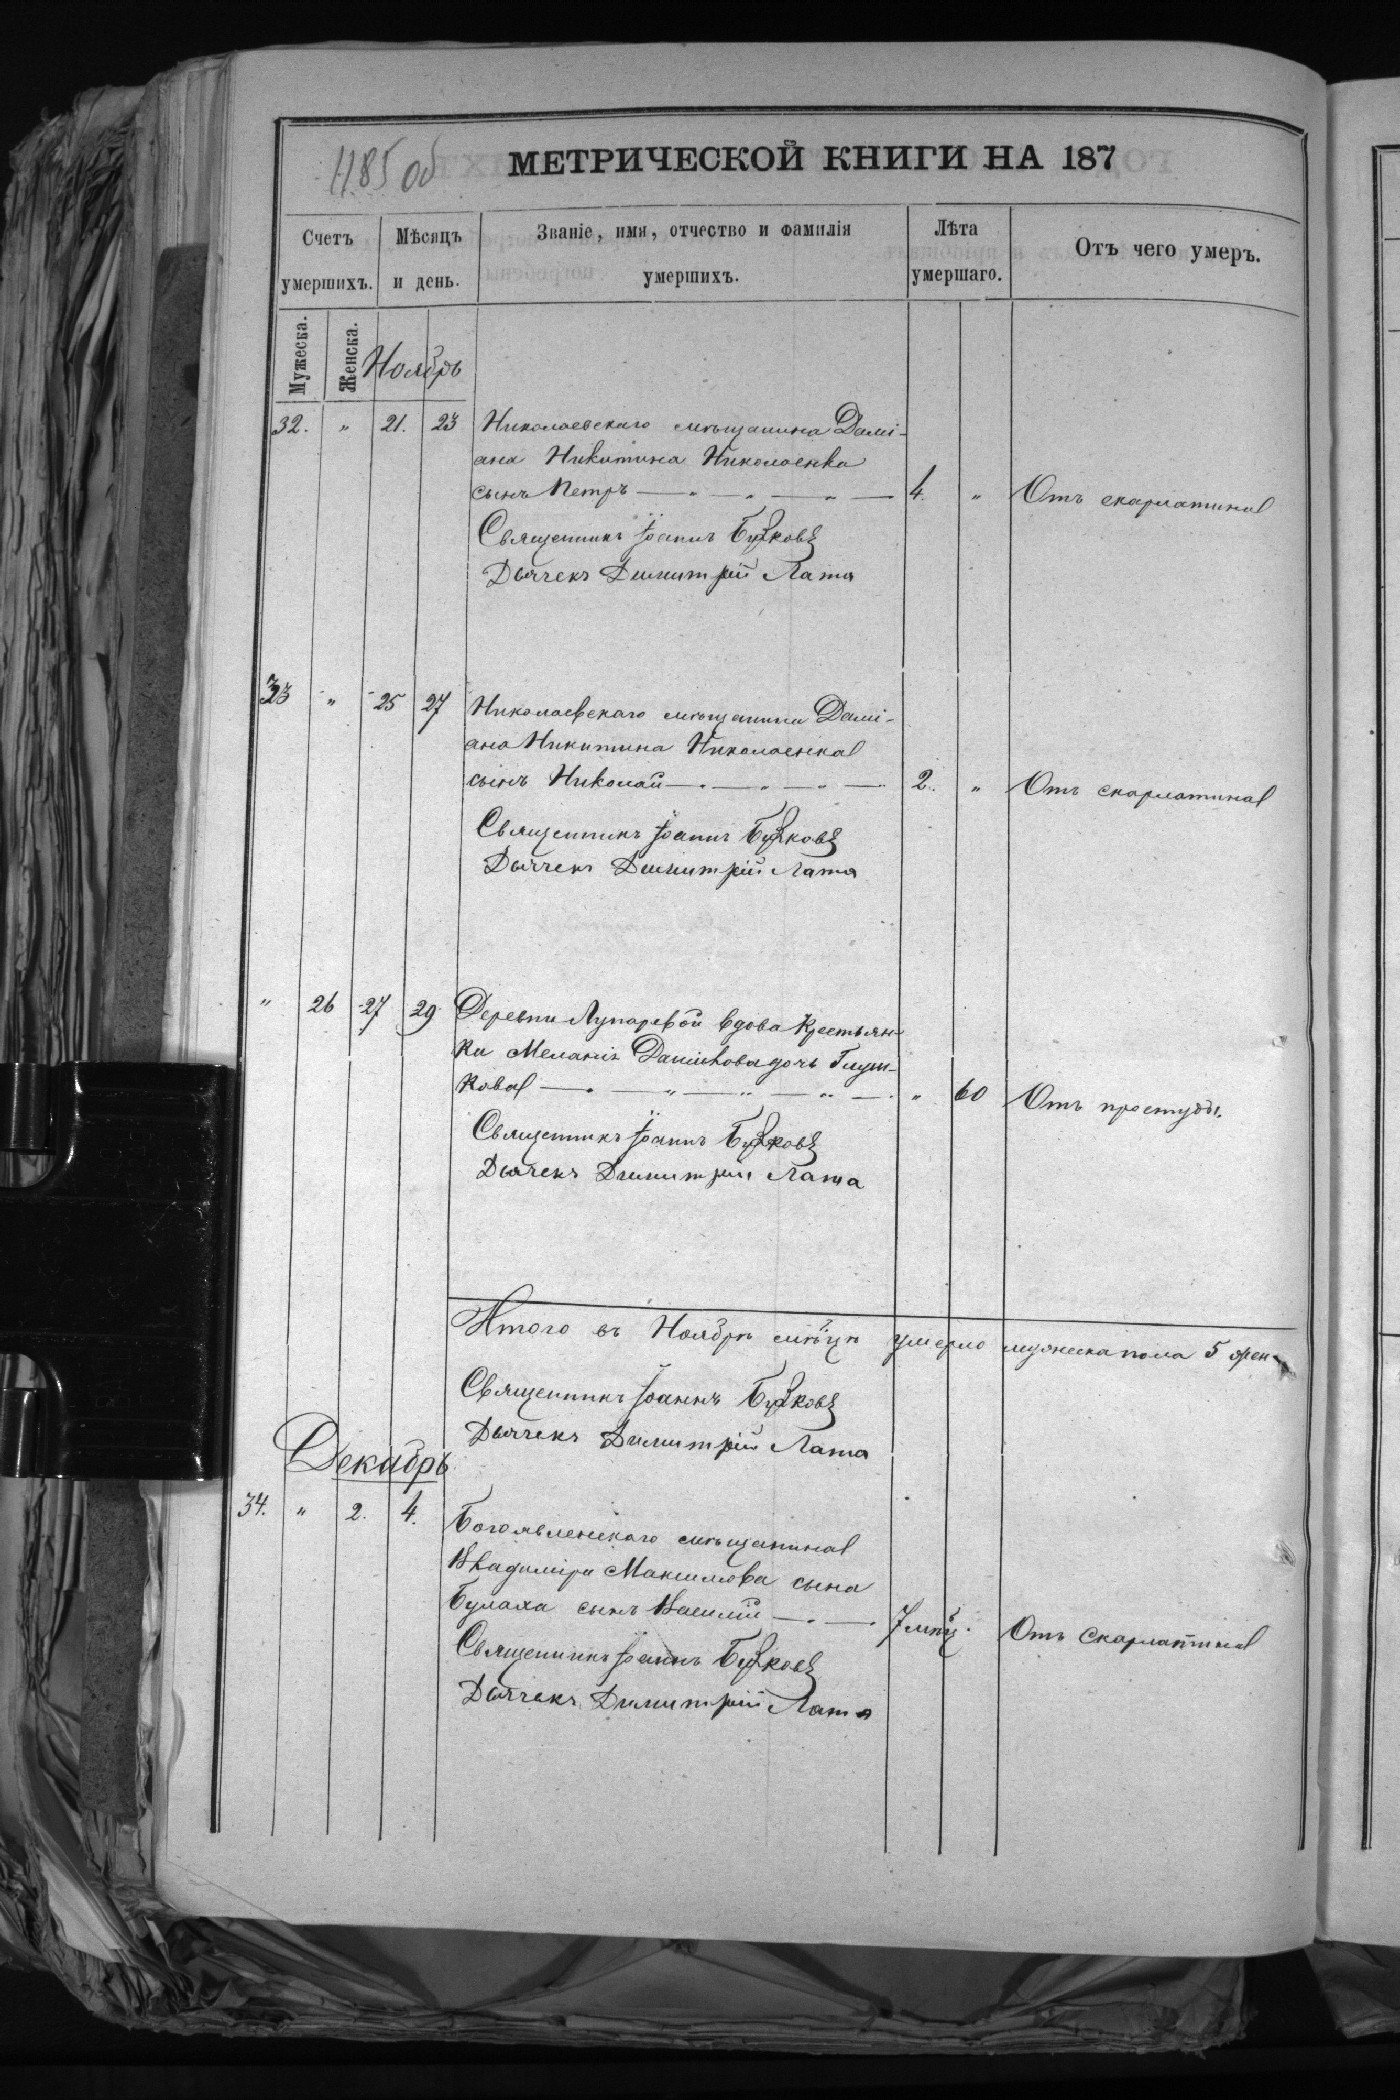 1185 об
МЕТРИЧЕСКОЙ КНИГИ НА 187
Счетъ умершихъ.
Мѣсяцъ и день.
Званіе, имя, отчество и фамилія умершихъ.
Лѣта умершаго.
Отъ чего умеръ.
Мужеска.
Женска.
Ноябрь
32. " 21. 23 Николаевскаго мѣщанина Дамі-
ана Никитина Николаенка
сынъ Петръ — " — " — " — 4. " Отъ скарлатины
Священникъ Іоаннъ
Дьячекъ Димитрій Лата
33 " 25 27 Николаевскаго мѣщанина Дамі-
ана Никитина Николаенка
сынъ Николай — " — " — " — 2. " Отъ скарлатины
Священникъ Іоаннъ
Дьячекъ Димитрій Лата
" 26 27 29 Деревни Лупаревой вдова крестьян-
ка Меланія дочь Глуш-
кова — " — " — " — " — " 60 Отъ простуды.
Священникъ Іоаннъ
Дьячекъ Димитрій Лата
Итого въ Ноябрѣ м-цѣ умерло мужеска пола 5 жен-
Священникъ Іоаннъ
Дьячекъ Димитрій Лата
Декабрь
34. " 2. 4. Богоявленскаго мѣщанина
Владиміра Максимова сына
Булаха сынъ Василій — " — 7 мц. Отъ скарлатины
Священникъ Іоаннъ
Дьячекъ Димитрій Лата